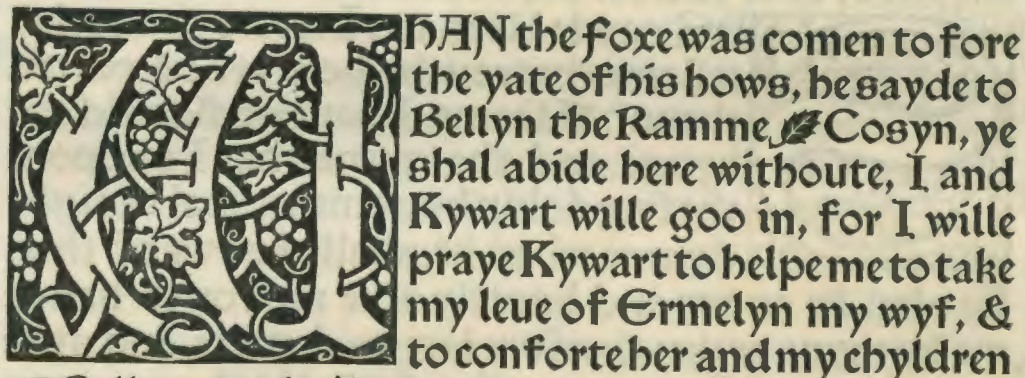 WHAN the foxe was comen to fore
the yate of his hows, he sayde to
Bellyn the Ramme, Cosyn, ye
shal abide here withoute, I and
Kywart wille goo in, for I wille
praye Kywart to helpe me to take
my leue of Ermelyn my wyf, &
to conforte her and my chyldren